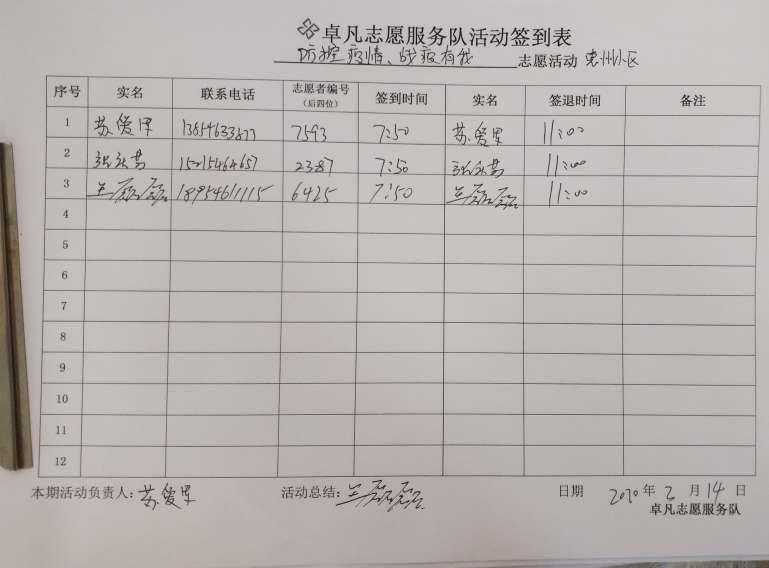 卓凡志愿服务队活动签到表
防控疫情、战疫有我 志愿活动 惠州小区
序号 实名 联系电话 志愿者编号（后四位） 签到时间 实名 签退时间 备注
1 苏爱果 7593 7:50 苏爱果 11:00
2 15215464657 2387 7:50 11:00
3 兰磊磊 18954611115 6425 7:50 兰磊磊 11:00
4
5
6
7
8
9
10
11
12
本期活动负责人: 苏爱果 活动总结: 兰磊磊 日期 2020年2月14日
卓凡志愿服务队